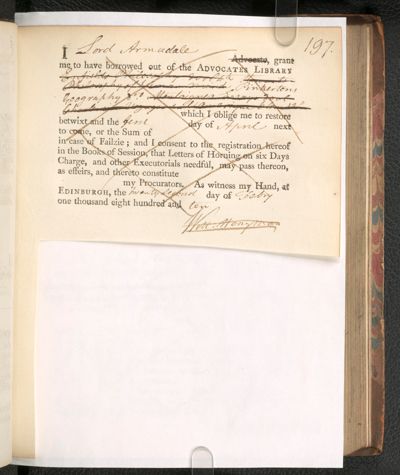 197.
I Lord Armadale
Advocate, grant
me to have borrowed out of the ADVOCATES LIBRARY
Pinkertons
Geography
which I oblige me to restore
betwixt and the first day of April next
to come, or the Sum of
in case of Failzie; and I consent to the registration hereof
in the Books of Session, that Letters of Horning on six Days
Charge, and other Executorials needful, may pass thereon,
as effeirs, and thereto constitute
my Procurators. As witness my Hand, at
EDINBURGH, the twenty second day of Feby
one thousand eight hundred and ten
Will Honyman